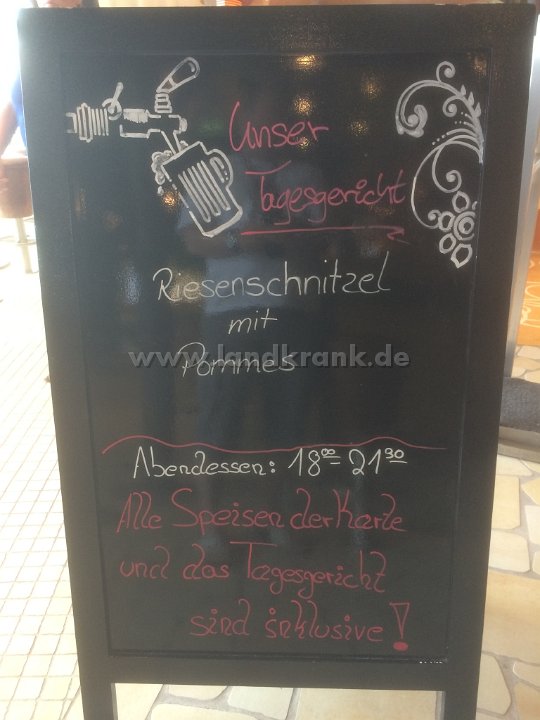 Unser
Tagesgericht
Riesenschnitzel
mit
www.landkrank.de
Pommes
Abendessen: 18⁰⁰- 21³⁰
Alle Speisen der Karte
und das Tagesgericht
sind inklusive!